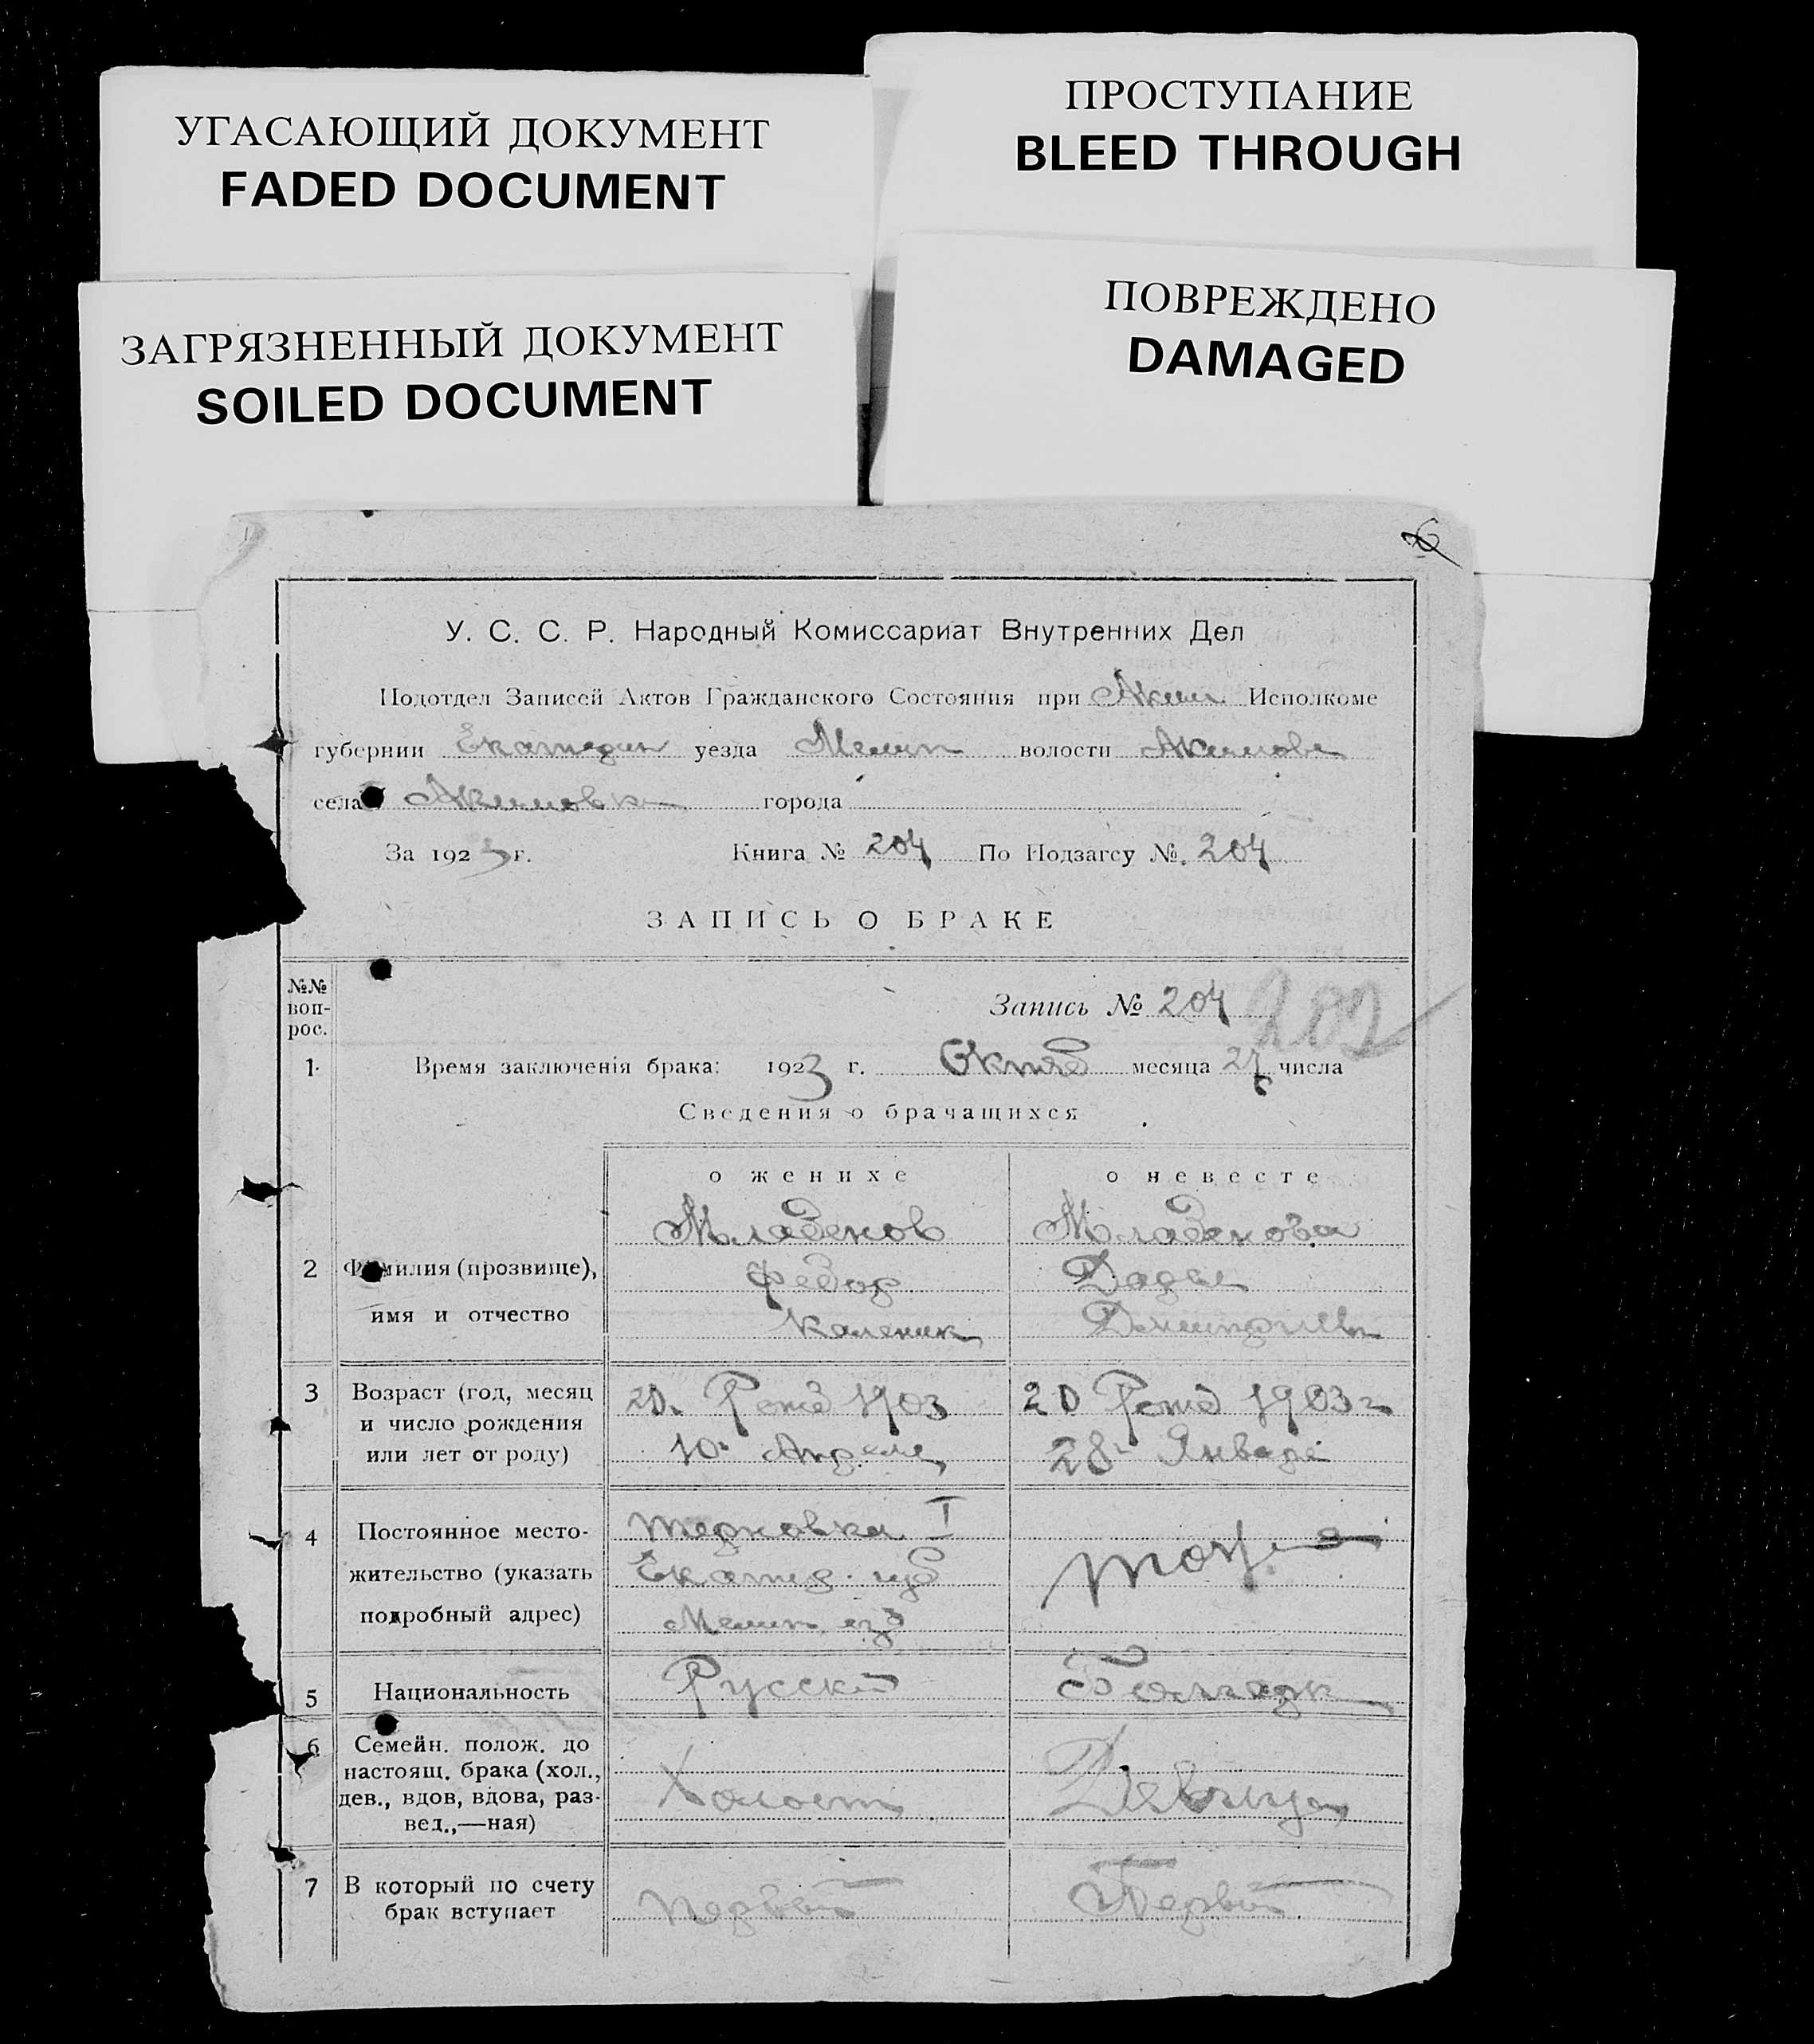 УГАСАЮЩИЙ ДОКУМЕНТ
FADED DOCUMENT
ПРОСТУПАНИЕ
BLEED THROUGH
ЗАГРЯЗНЕННЫЙ ДОКУМЕНТ
SOILED DOCUMENT
ПОВРЕЖДЕНО
DAMAGED
6
У. С. С. Р. Народный Комиссариат Внутренних Дел
Подотдел Записей Актов Гражданского Состояния при Аким. Исполкоме
губернии Екатерин уезда Мелит волости Акимов
села Акимовка города
За 1923 г. Книга № 204 По Подзагсу №. 204
ЗАПИСЬ О БРАКЕ
№№ воп-рос.
Запись № 204 202
1. Время заключенія брака: 1923 г. Октяб месяца 27 числа
Сведения о брачащихся
о женихе о невесте
Младенов Младенова
2 Фамилия (прозвище), Федор Дарья
имя и отчество Каленик Дмитриев
3 Возраст (год, месяц 20. Рожд 1903 20 Рожд 1903 г
и число рождения
или лет от роду) 10 Апреля 28 Января
4 Постоянное место- Терновка I
жительство (указать Екатер. губ тоже
подробный адрес) Мелит. езд
5 Национальность Русский Болгарк
6 Семейн. полож. до
настоящ. брака (хол.,
дев., вдов, вдова, раз- Холост Девица
вед.,—ная)
7 В который по счету
брак вступает Первый Первый